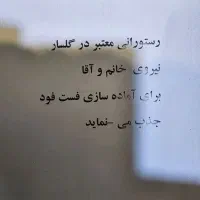 رستورانی معتبر در گلسار
نیروی خانم و آقا
برای آماده سازی فست فود
جذب می -نماید